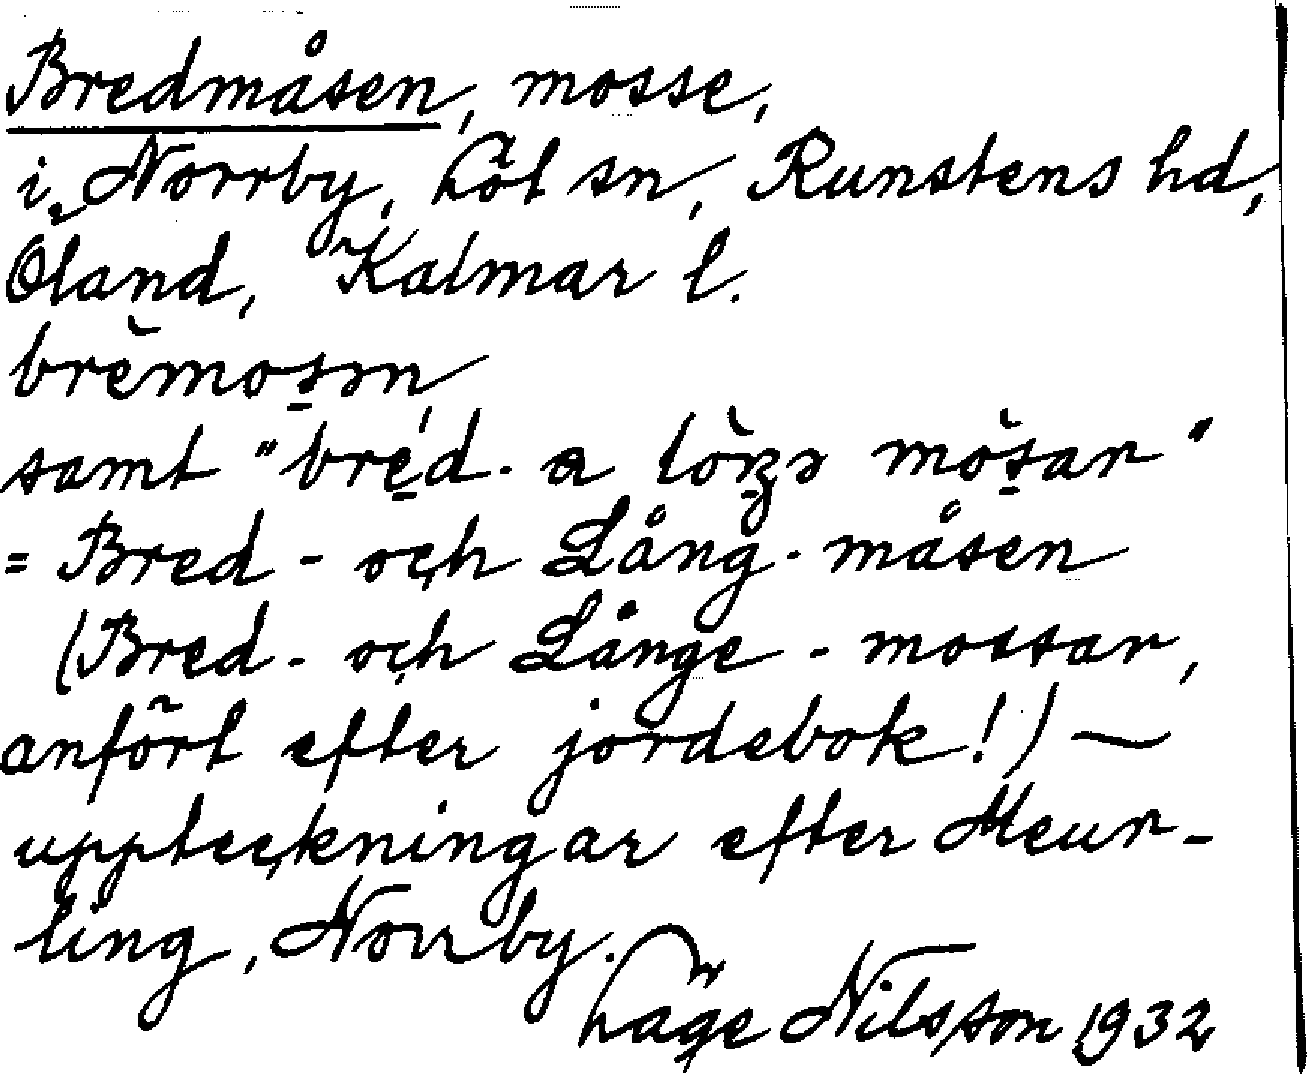 Bredmåsen, mosse,
i Norrby, Löt sn, Runstens hd,
Öland, Kalmar l.
brèmosən
samt "bred- a lòŋə mòsar"
= Bred- och Lång-måsen
(Bred- och Långe-mossar,
anfört efter jordebok!) —
uppteckningar efter Meur-
ling, Norrby.
Låge Nilsson 1932